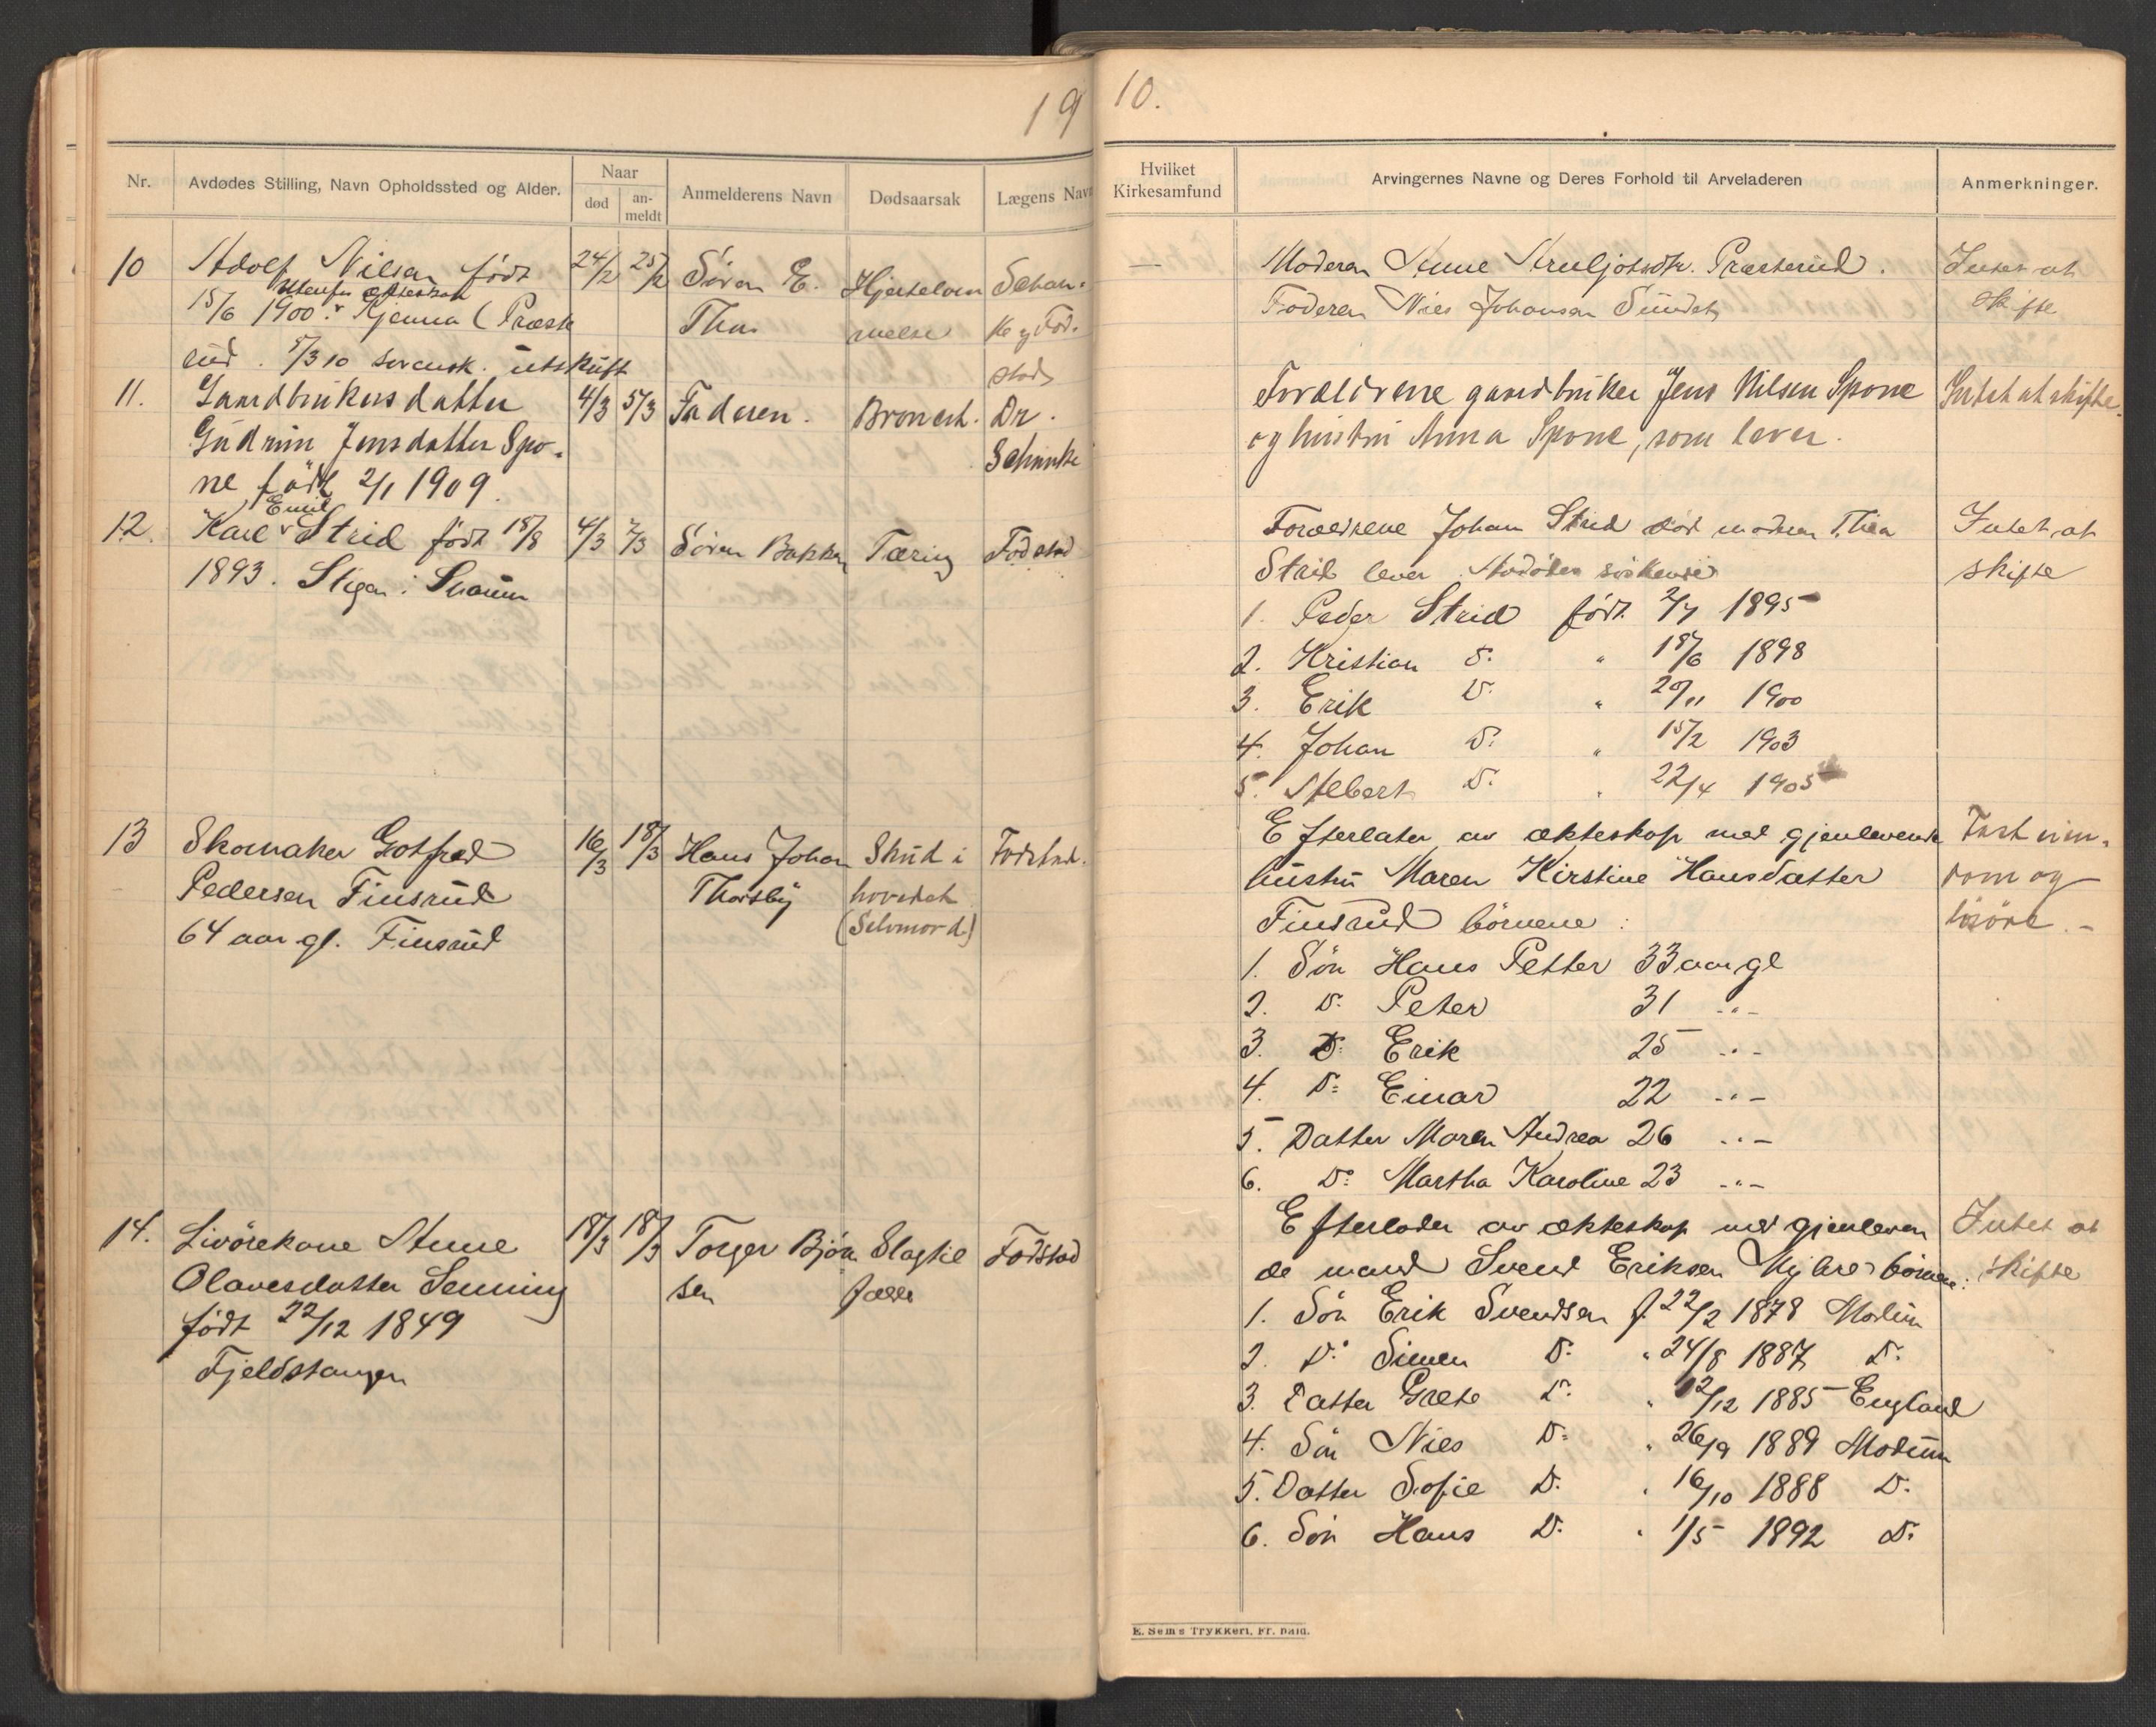 19
Nr.
Avdødes Stilling, Navn Opholdssted og Alder.
Naar
død
an-
meldt
Anmelderens Navn
Dødsaarsak
Lægens Navn
10 Adolf Nilsen født 24/2 25/2 Søren E. Hjertelam Schan-
utenfor ekteskap
15/6 1900. Kjenna (Præste Thon melse ke og Fod-
rud. 5/3 10 svensk. utskrift stad
11. Gaardbrukersdatter 4/3 5/3 Faderen. Bronch. Dr.
Gudrun Jensdatter Spo- Schanke
ne født 2/1 1909.
Emil
12. Karl Strid født 18/8 4/3 7/3 Søren Bakken Tæring Fodstad
1893. Stigen i Snarum
13 Skomaker Gotfred 16/3 18/3 Hans Johan Skud i Fodstad.
Pedersen Finsrud Thorsby hovedet
64 aar gl. Finsrud (Selvmord)
14. Livørekone Anne 18/3 18/3 Torger Bjørn Slagtil Fodstad
Olavesdatter Senning sen fælde
født 22/12 1849
Fjeldstangen
10.
Hvilket
Kirkesamfund
Arvingernes Navne og Deres Forhold til Arveladeren
Anmerkninger.
— Moderen Anne Præsterud. Intet at
Faderen Nils Johansen Sundet skifte
Forældrene gaardbruker Jens Nilsen Spone Intet at skifte.
og hustru Anna Spone, som lever.
Forældrene Johan Strid død moderen Thea Intet at
Strid lever. Avdødes søskende skifte
1. Peder Strid født 2/7 1895
2. Kristian D: " 18/6 1898
3. Erik D: " 20/11 1900
4. Johan D: " 15/2 1903
5. Albert D: " 22/4 1905
Efterlater av ekteskap med gjenlevende Fast eien-
hustru Maren Kirstine Hansdatter dom og
Finsrud børnene: løsøre.-
1. Søn Hans Petter 33 aar gl
2. D: Peter 31 -"-
3. D: Erik 25 -"-
4. D: Einar 22 -"-
5. Datter Maren Andrea 26 -"-
6. D: Martha Karoline 23 -"-
Efterlader av ekteskap med gjenleven Intet at
de mand Svend Eriksen børnene: skifte
1. Søn Erik Svendsen f. 22/2 1878 Modum
2. D: Simen D: " 24/8 1887 D:
3. Datter Grete D: " 12/12 1885 England
4. Søn Nils D: " 26/9 1889 Modum
5. Datter Sofie D: " 16/10 1888 D:
6. Søn Hans D: " 1/5 1892 D:
E. Sem's Trykkeri, Fr. hald.